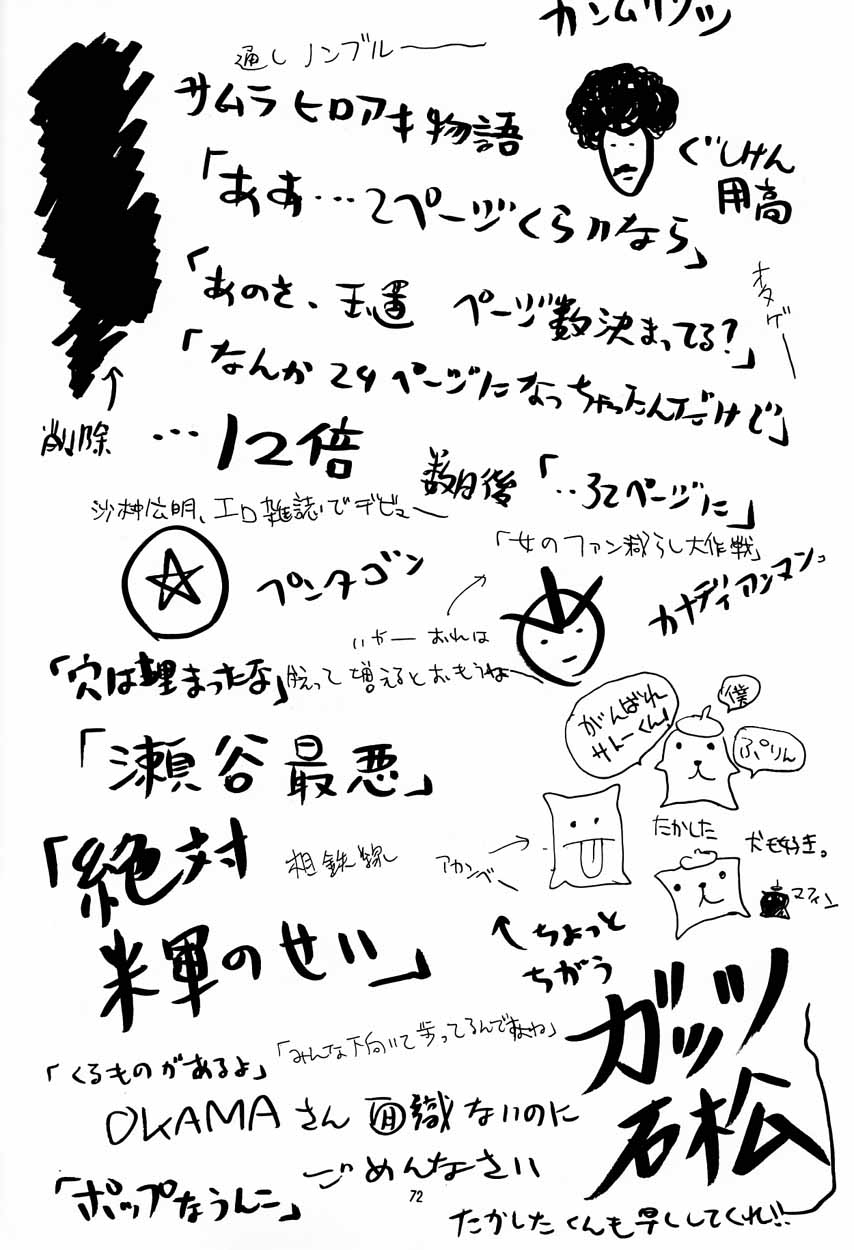 カンムリワシ
通しノンブル——
サムラヒロアキ物語
ぐしけん
用高
「ああ…2ページくらいなら」
オタゲー
「あのさ、 ページ数決まってる?」
「なんか24ページになっちゃったんだけど」
削除
…12倍
数日後「‥32ページに」
沙村広明、エロ雑誌でデビュー
「女のファン減らし大作戦」
ペンタゴン
カナディアンマン。
いやー おれは
「穴は埋まったな」
脱って増えるとおもうねー
がんばれ
サトーくん!
僕
ぷりん
「瀬谷最悪」
たかした
犬も好き。
「絶対
相鉄線
アカンベー
マフィン
米軍のせい」
ちょっと
ちがう
ガッツ
石松
「みんな下向いて歩ってるんですよね」
「くるものがあるよ」
OKAMAさん 面識ないのに
ごめんなさい
「ポップなうんこ」
72
たかしたくんも早くしてくれ!!